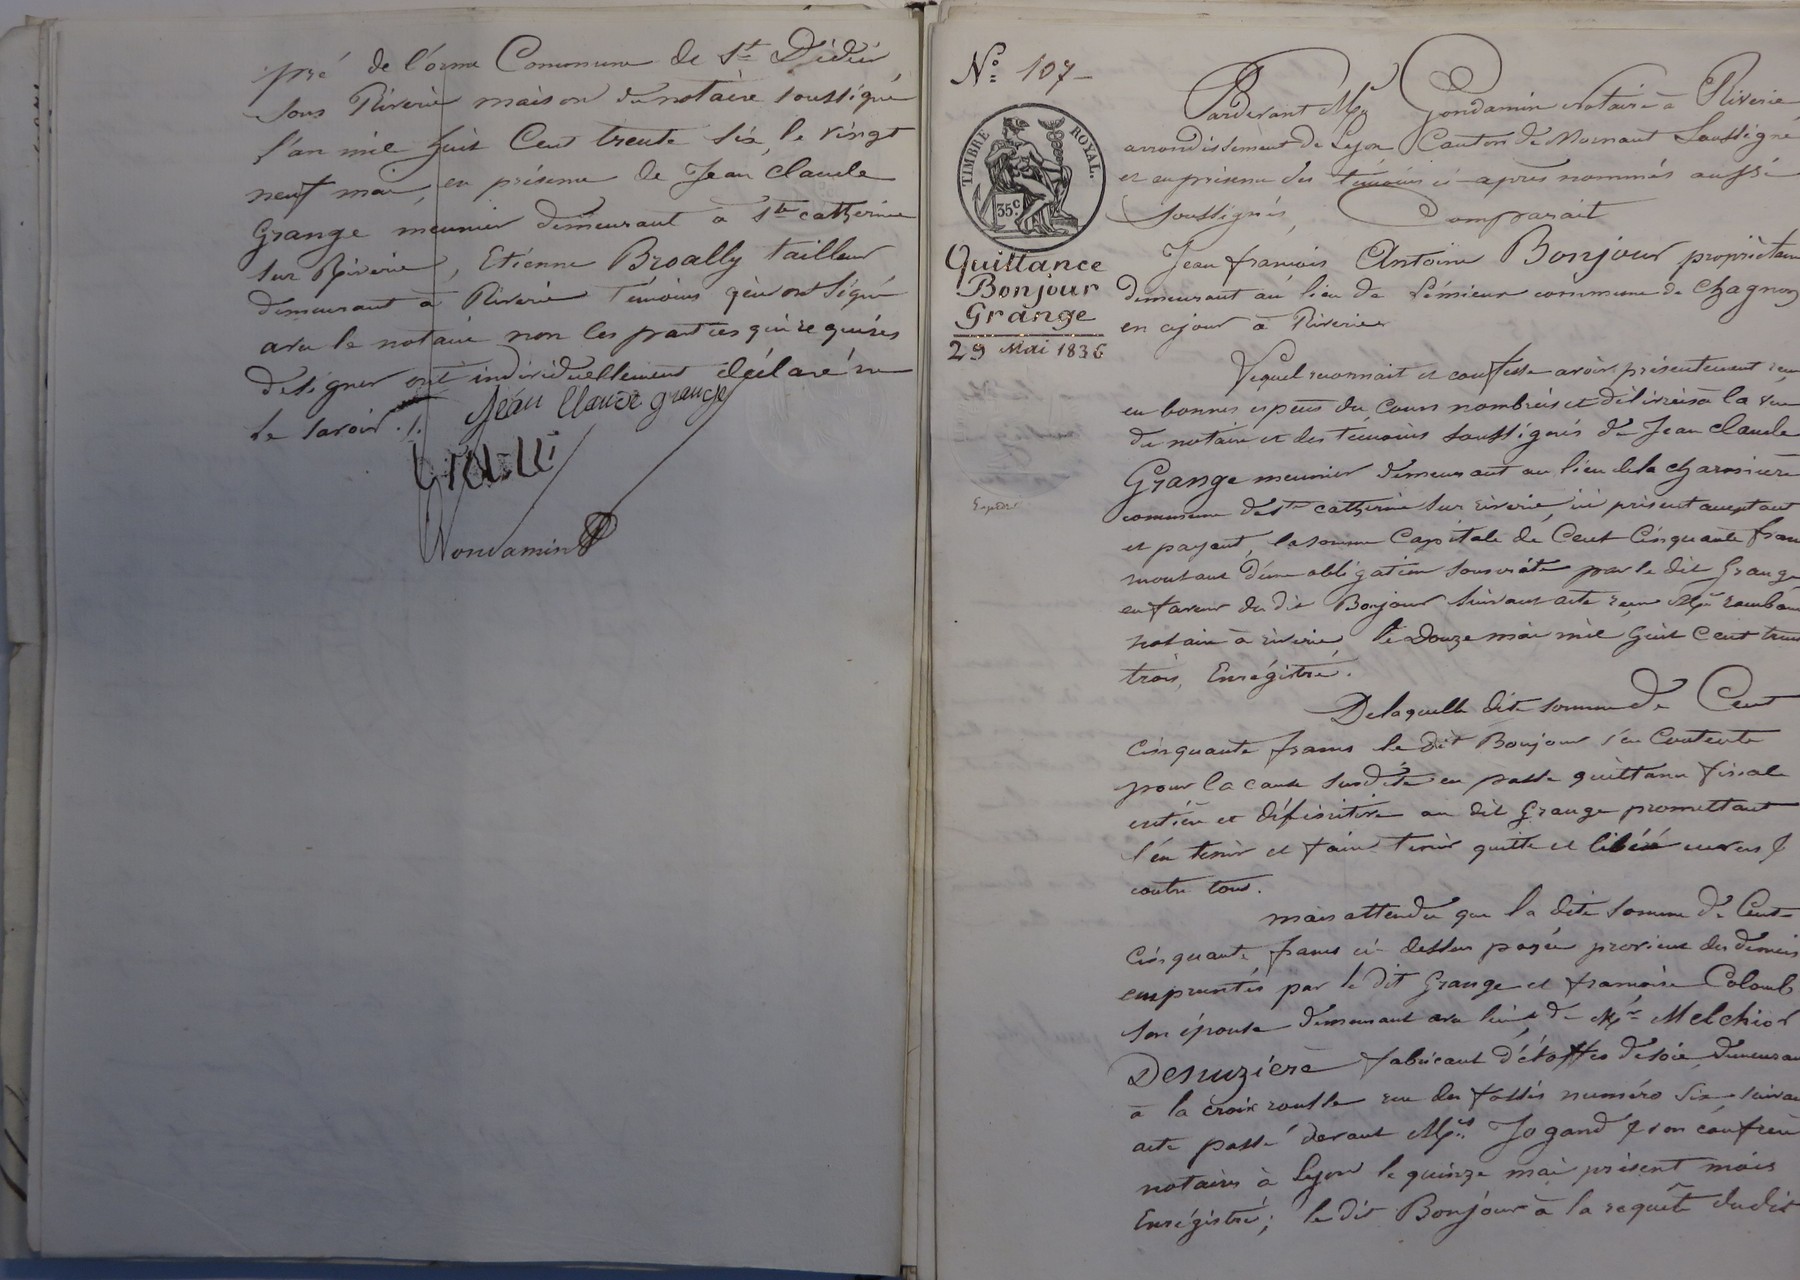 pré de l'orme Commune de St Didier
sous Riverie maison du notaire soussigné
l'an mil huit Cent trente six, le vingt
neuf mai, en présence de Jean Claude
Grange meunier demeurant à Ste catherine
sur Riverie, Etienne Broally tailleur
demeurant à Riverie témoins qui ont signé
avec le notaire non les parties qui requises
de signer ont individuellement déclaré ne
le savoir ./.
Jean Claude grange
Gondamin
No. 107
TIMBRE ROYAL.
35c
Quittance
Bonjour
Grange
29 Mai 1836
Expédié
Pardevant Me Gondamin Notaire à Riverie
arrondissement de Lyon Canton de Mornant Soussigné
et en présence des témoins ci-après nommés aussi
soussignés, Comparait
Jean françois Antoine Bonjour propriétaire
demeurant au lieu de commune de Chagnon
en ce jour à Riverie
Lequel reconnait et confesse avoir présentement reçu
en bonnes espèces du Cours nombreés et délivreés à la vue
du notaire et des temoins soussignés de Jean Claude
Grange meunier demeurant au lieu de la charmiere
commune de Ste catherine sur riverie, ici présent acceptant
et payant, la somme Capitale de Cent Cinquante francs
montant d'une obligation souscrite par le dit Grange
en faveur du dit Bonjour suivant acte reçu Me
notaire à riverie, le Douze mai mil huit Cent trente
trois, Enrégistré.
De laquelle dite somme de Cent
Cinquante francs le dit Bonjour s'en Contente
pour la cause susdite en passe quittance finale
entière et définitive au dit Grange promettant
l'en tenir et faire tenir quitte et libéré envers &
contre tous.
mais attendu que la dite somme de Cent
Cinquante francs ci-dessus payée provient des deniers
empruntés par le dit Grange et françoise Colomb
son épouse demeurant avec lui de Mr Melchior
Desuzière fabricant d'étoffes de soie, demeurant
à la croix rousse rue des fossés numéro six suivant
acte passé devant Mes Jogand & son confrère
notaires à Lyon le quinze mai présent mois
Enrégistré; le dit Bonjour à la requête du dit